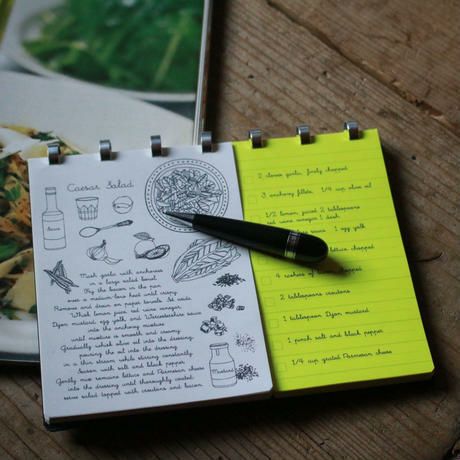 Caesar Salad
Sauce
Mash garlic with anchovies
in a large salad bowl.
Fry the bacon in the pan
over a medium-low heat until crispy.
Remove and drain on paper towels. Set aside.
Whisk lemon juice red wine vinegar,
Dijon mustard, egg yolk and Worcestershire sauce
into the anchovy mixture
until mixture is smooth and creamy.
Gradually whisk olive oil into the dressing,
pouring the oil into the dressing
in a thin stream while stirring constantly.
Season with salt and black pepper.
Gently mix romaine lettuce and Parmesan cheese
into the dressing until thoroughly coated.
serve salad topped with croutons and bacon.
Mustard
2 cloves garlic, finely chopped
3 anchovy fillets, 1/4 cup olive oil
1/2 lemon, juiced 2 tablespoons
red wine vinegar 1 dash
sauce 1 egg yolk
lettuce chopped
4 rashers of
2 tablespoons croutons
1 tablespoon Dijon mustard
1 pinch salt and black pepper
1/4 cup grated Parmesan cheese